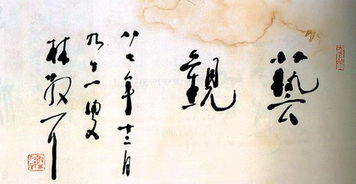 藝觀
八七年十二月
九十一叟
林散耳